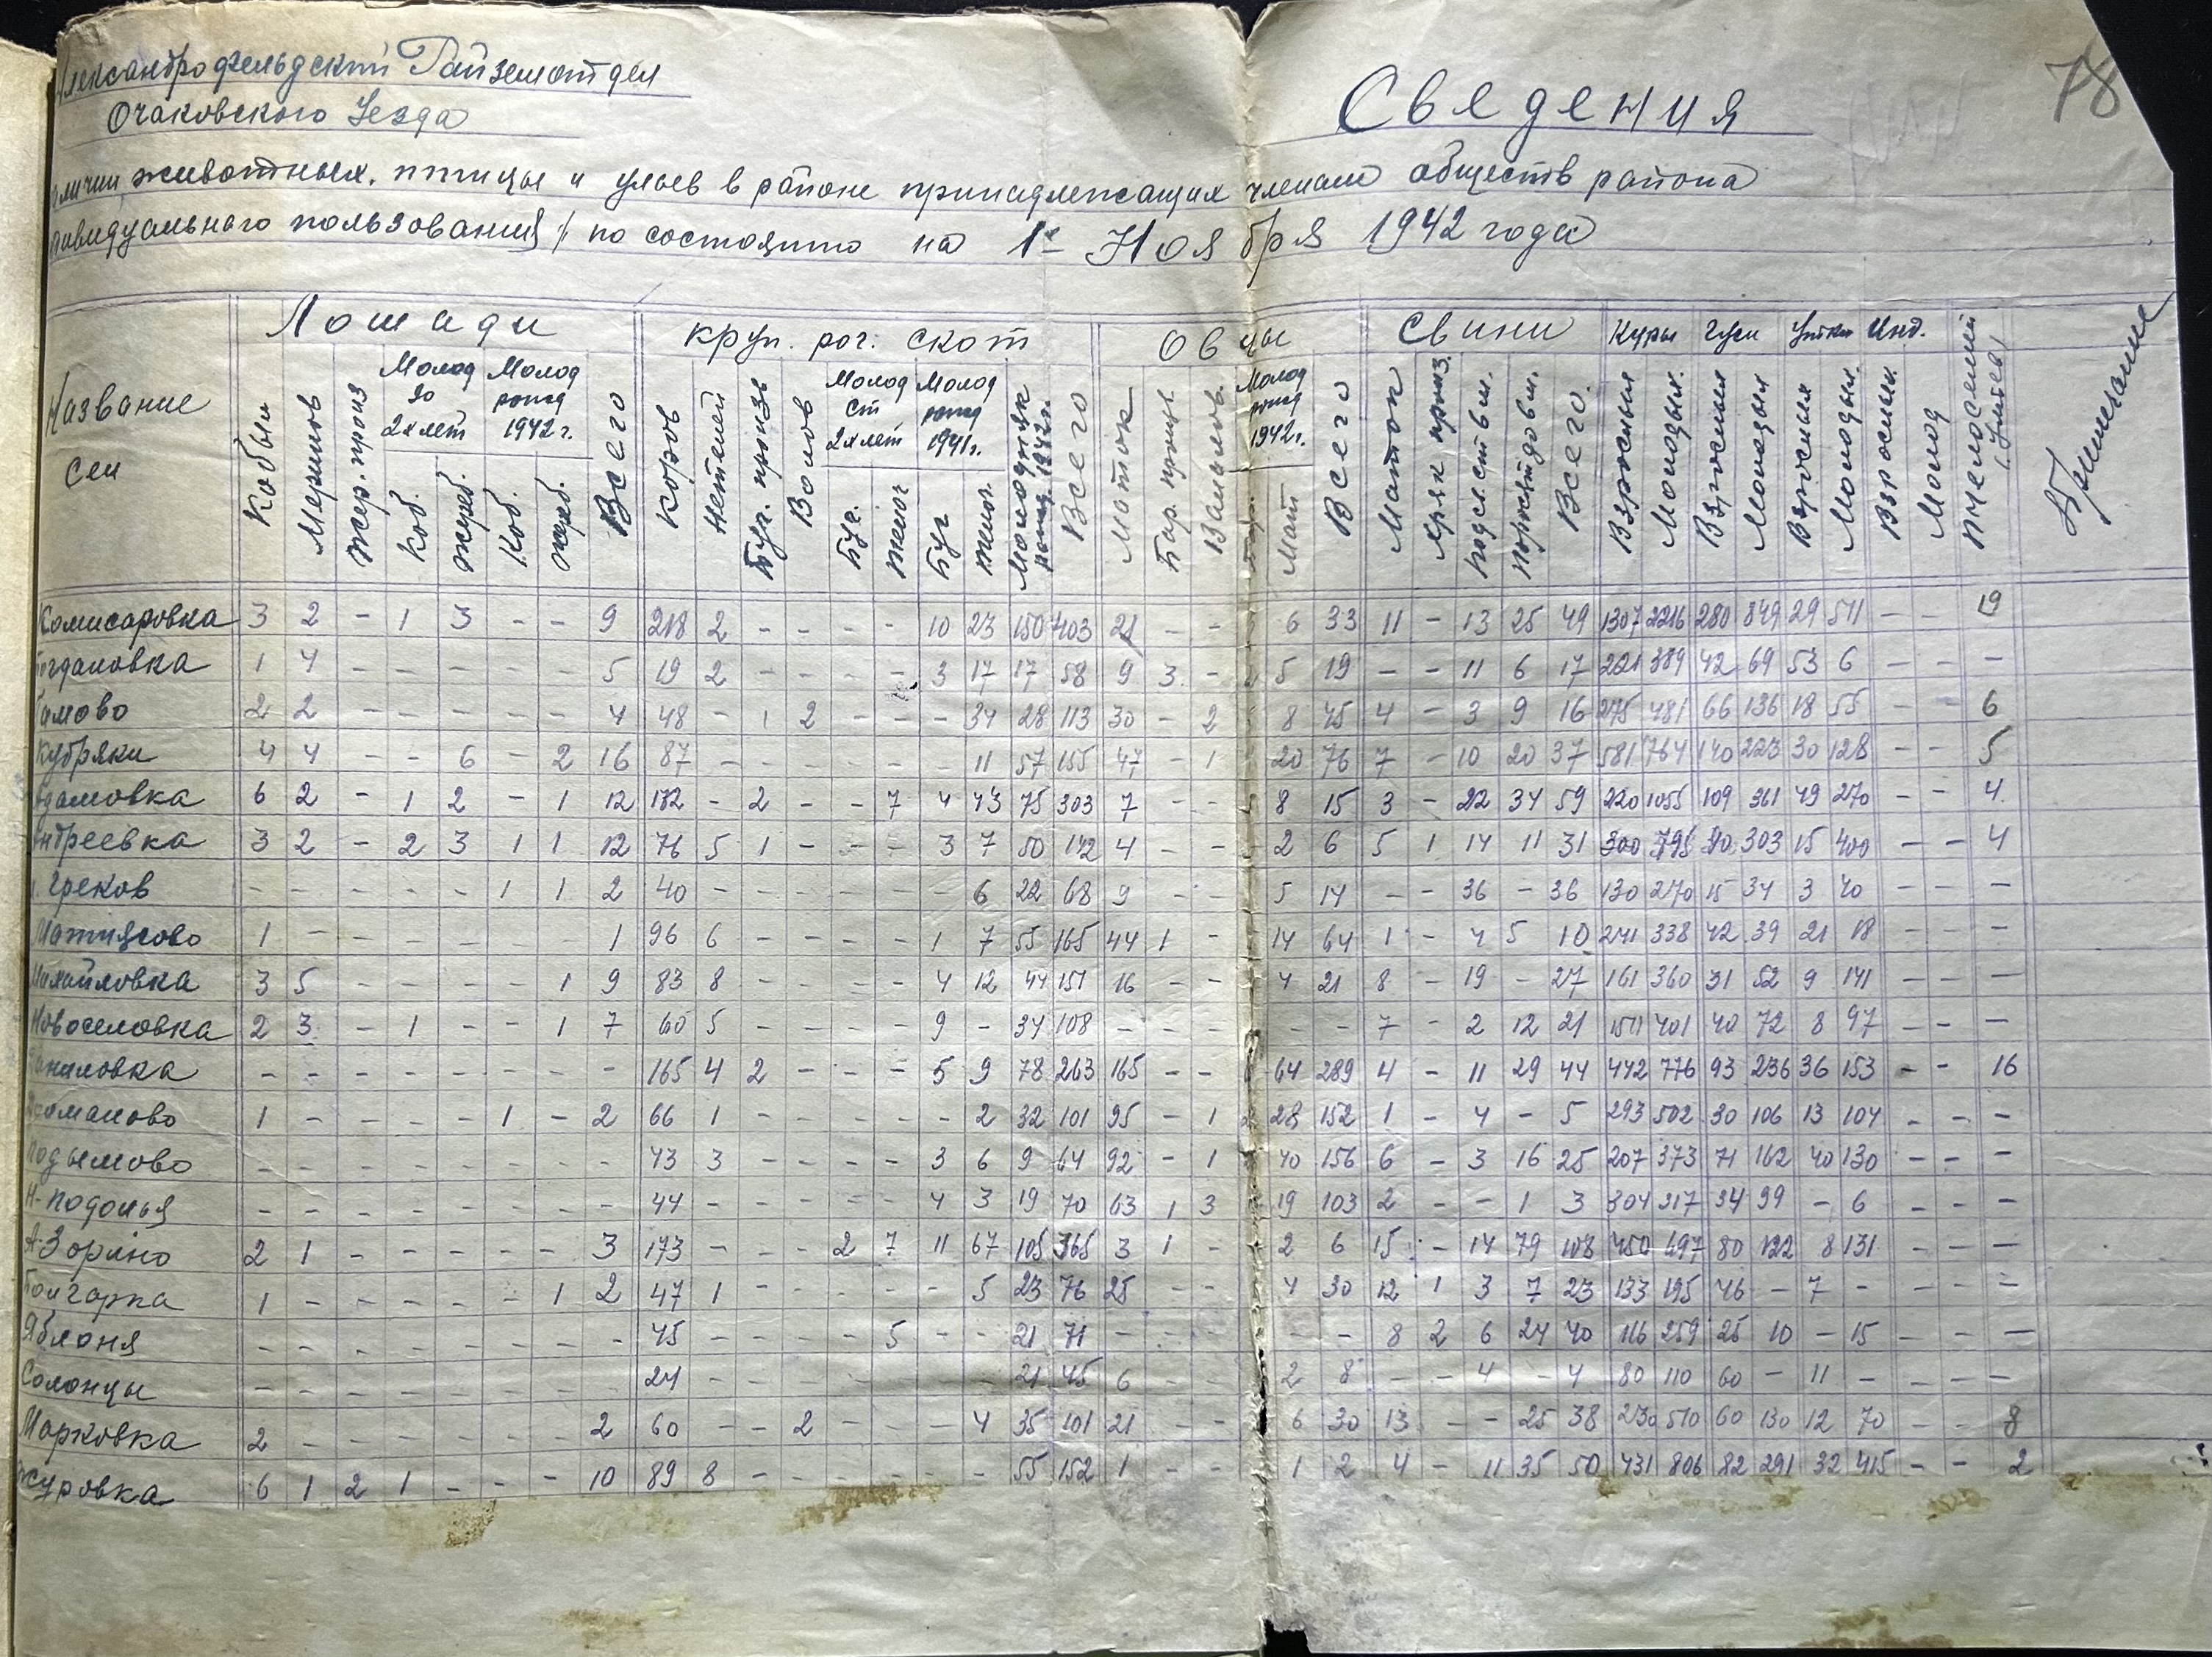 Александрофельдский Райземотдел
Очаковского Уезда
78
Сведения
наличии животных, птицы и ульев в районе принадлежащих членам обществ района
индивидуального пользования / по состоянию на 1е Ноября 1942 года
Название сел
Лошади
Кобыл Меринов Жер. произ Молод до 2х лет Коб. Жереб. Молод рожд 1942 г. Коб. Жереб. Всего
круп. рог. скот
Коров Нетелей Буг. произв Волов Молод ст 2х лет Буг. Телог Молод рожд 1941 г. Буг Телог. Молодняк рожд. 1942 г. Всего
Овцы
Маток Бар. произв. Валахов. Молод рожд 1942 г. Мат Всего
Свини
Маток Хряк произ. Подсвин. Поросят до 2 м. Всего.
Куры Взрослых Молодых.
Гуси Взрослых Молодых
Утки Взрослых Молодых.
Инд. Взрослых. Молод
Пчелосемей (Ульев)
Примечание
Комисаровка 3 2 - 1 3 - - 9 218 2 - - - - - 10 23 150 403 21 - - 6 33 11 - 13 25 49 1307 2216 280 849 29 511 - - 19
Богдановка 1 4 - - - - - 5 19 2 - - - - 3 17 17 58 9 3 - 5 19 - - 11 6 17 221 389 42 69 53 6 - - -
2 2 - - - - - 4 48 - 1 2 - - - 34 28 113 30 - 2 8 45 4 - 3 9 16 275 481 66 136 18 55 - - 6
Кубряки 4 4 - - 6 - 2 16 87 - - - - - - 11 57 155 47 - 1 20 76 7 - 10 20 37 581 764 140 223 30 128 - - 5
Адамовка 6 2 - 1 2 - 1 12 172 - 2 - - 7 4 43 75 303 7 - - 8 15 3 - 22 34 59 220 1055 109 361 49 270 - - 4
Андреевка 3 2 - 2 3 1 1 12 76 5 1 - - - 3 7 50 142 4 - - 2 6 5 1 14 11 31 300 795 90 303 15 400 - - 4
Греков - - - - - 1 1 2 40 - - - - - - 6 22 68 9 - - 5 14 - - 36 - 36 130 270 15 34 3 40 - - -
Матиясово 1 - - - - - 1 96 6 - - - - 1 7 55 165 44 1 - 14 64 1 - 4 5 10 241 338 42 39 21 18 - - -
Михайловка 3 5 - - - - 1 9 83 8 - - - - 4 12 44 151 16 - - 4 21 8 - 19 - 27 161 360 31 52 9 141 - - -
Новоселовка 2 3 - 1 - - 1 7 60 5 - - - - 9 - 34 108 - - - - - 7 - 2 12 21 1511 401 40 72 8 97 - - -
Даниловка - - - - - - - - 165 4 2 - - - 5 9 78 263 165 - - 64 289 4 - 11 29 44 442 776 93 236 36 153 - - 16
1 - - - - 1 - 2 66 1 - - - - - 2 32 101 95 - 1 28 152 1 - 4 - 5 293 502 30 106 13 104 - - -
Подымово - - - - - - - - 43 3 - - - - 3 6 9 64 92 - 1 40 156 6 - 3 16 25 207 373 71 162 40 130 - - -
Н-Подолья - - - - - - - - 44 - - - - - 4 3 19 70 63 1 3 19 103 2 - - 1 3 304 317 34 99 - 6 - - -
А-Зорино 2 1 - - - - - 3 173 - - - 2 7 11 67 105 365 3 1 - 2 6 15 - 14 79 108 450 697 80 122 8 131 - - -
Болгарка 1 - - - - - 1 2 47 1 - - - - - 5 23 76 25 - - 4 30 12 1 3 7 23 133 195 46 - 7 - - - -
Яблоня - - - - - - - - 45 - - - - 5 - - 21 71 - - - - - 8 2 6 24 40 116 259 25 10 - 15 - - -
Солонцы - - - - - - - - 24 - - - - - - - 21 45 6 - - 2 8 - - 4 - 4 80 110 60 - 11 - - - -
Марковка 2 - - - - - - 2 60 - - 2 - - - 4 35 101 21 - - 6 30 13 - - 25 38 230 510 60 130 12 70 - - 8
6 1 2 1 - - - 10 89 8 - - - - - - 55 152 1 - - 1 2 4 - 11 35 50 431 806 82 291 32 415 - - 2